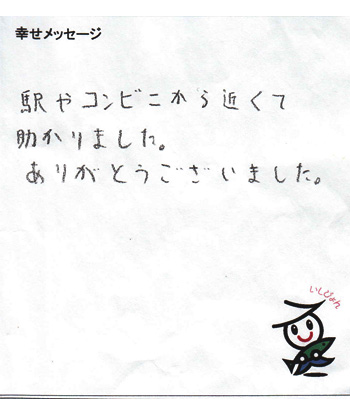 幸せメッセージ
駅やコンビニから近くて
助かりました。
ありがとうございました。
いしぴょん